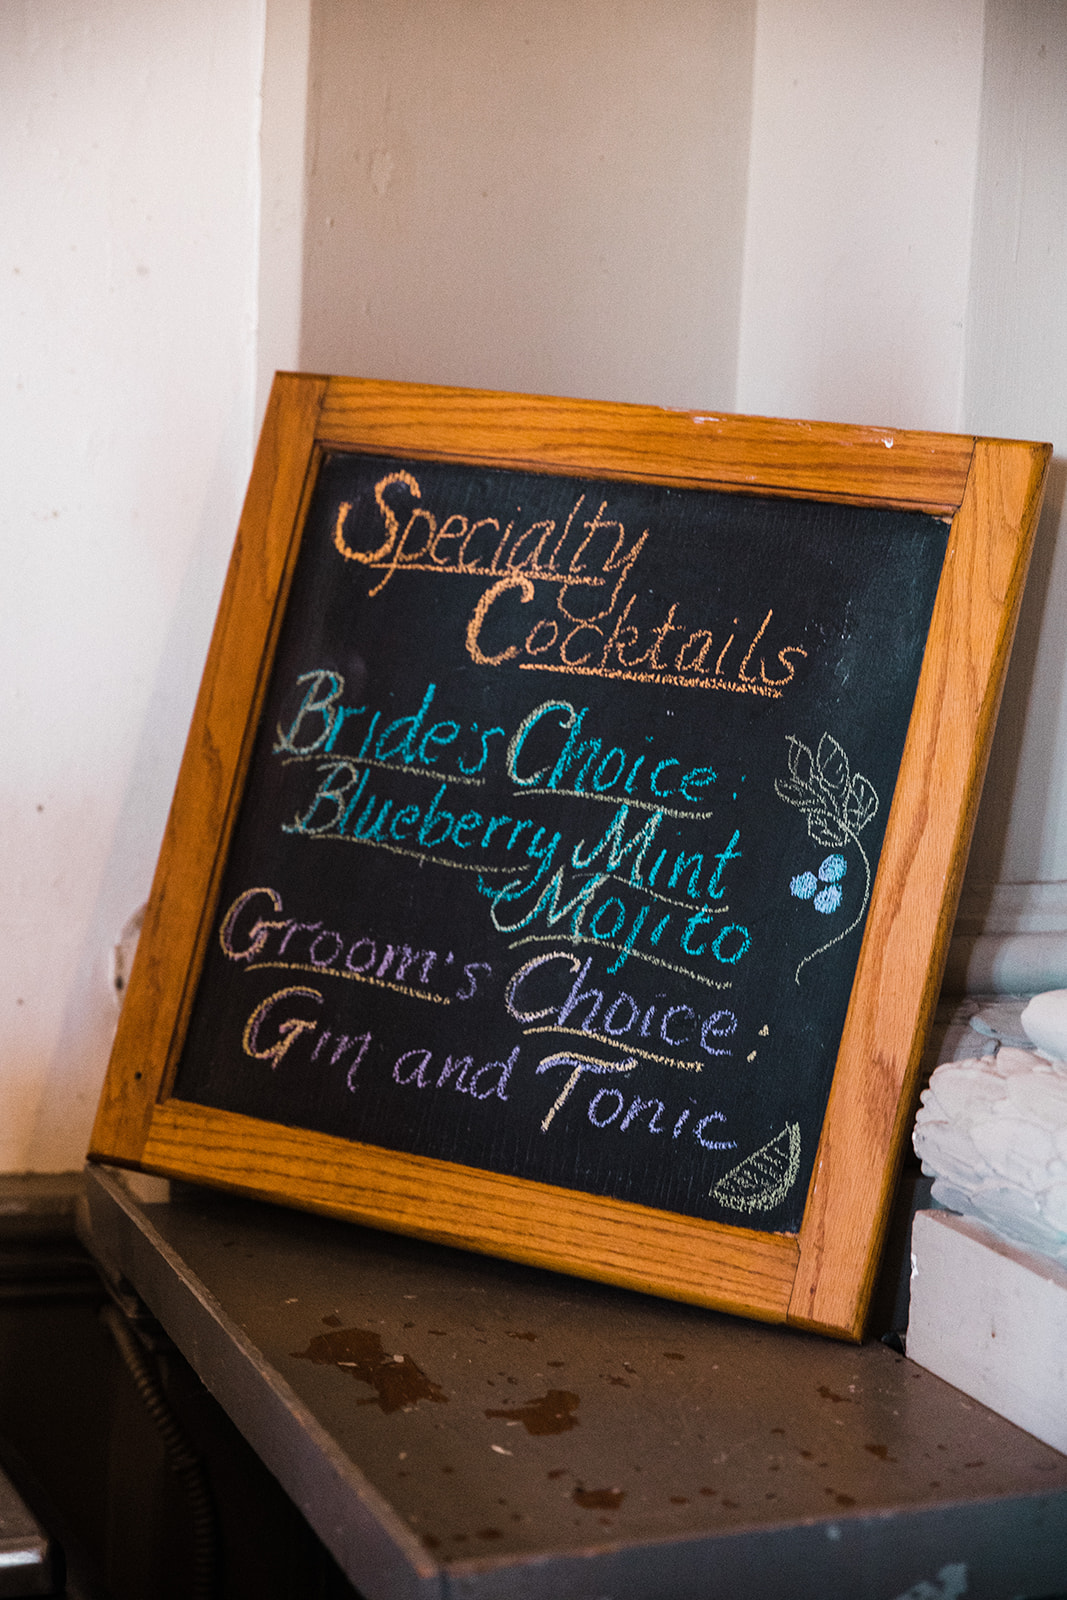 Specialty
Cocktails
Bride's Choice:
Blueberry Mint
Mojito
Groom's Choice:
Gin and Tonic